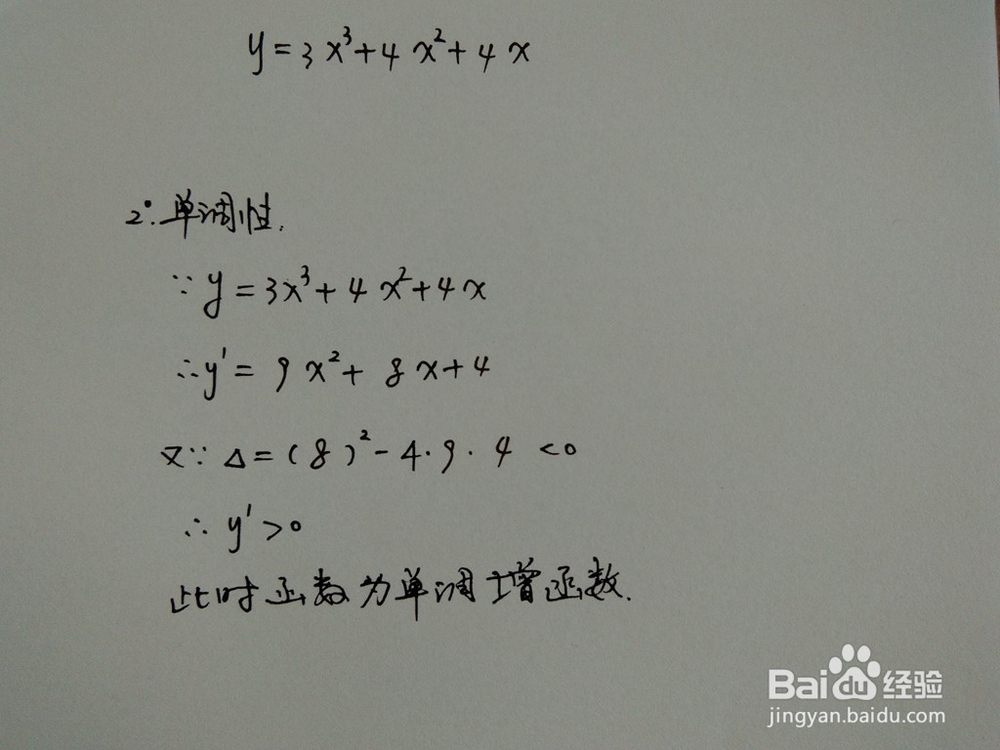 y = 3x³ + 4x² + 4x
2°. 单调性.
∵ y = 3x³ + 4x² + 4x
∴ y' = 9x² + 8x + 4
又∵ Δ = (8)² - 4·9·4 < 0
∴ y' > 0
此时函数为单调增函数.
Baidu经验
jingyan.baidu.com